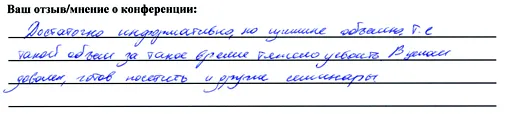 Ваш отзыв/мнение о конференции:
Достаточно информативно, но лишние объемно, т.е
такой объем за такое время тяжело усвоить В целом
доволен, готов посетить и другие семинары